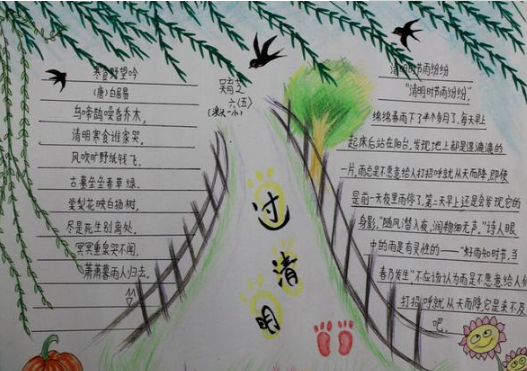 寒食野望吟
(唐)白居易
乌啼鹊噪昏乔木,
清明寒食谁家哭。
风吹旷野纸钱飞,
古墓垒垒春草绿。
棠梨花映白杨树,
尽是死生别离处。
冥冥重泉哭不闻,
萧萧暮雨人归去。
六(五)
过清明
清明时节雨纷纷
"清明时节雨纷纷"。
绵绵春雨下了个把月了,每天早上
起床后站在阳台,发现地上都是湿漉漉的
一片,雨总是不愿意给人打招呼就从天而降,即使
是前一天夜里雨停了,第二天早上还是会发现它的
身影。"随风潜入夜,润物细无声。"诗人眼
中的雨是有灵性的——"好雨知时节,当
春乃发生"不应该认为雨是不愿意给人们
打招呼就从天而降,它是来不及
吧。